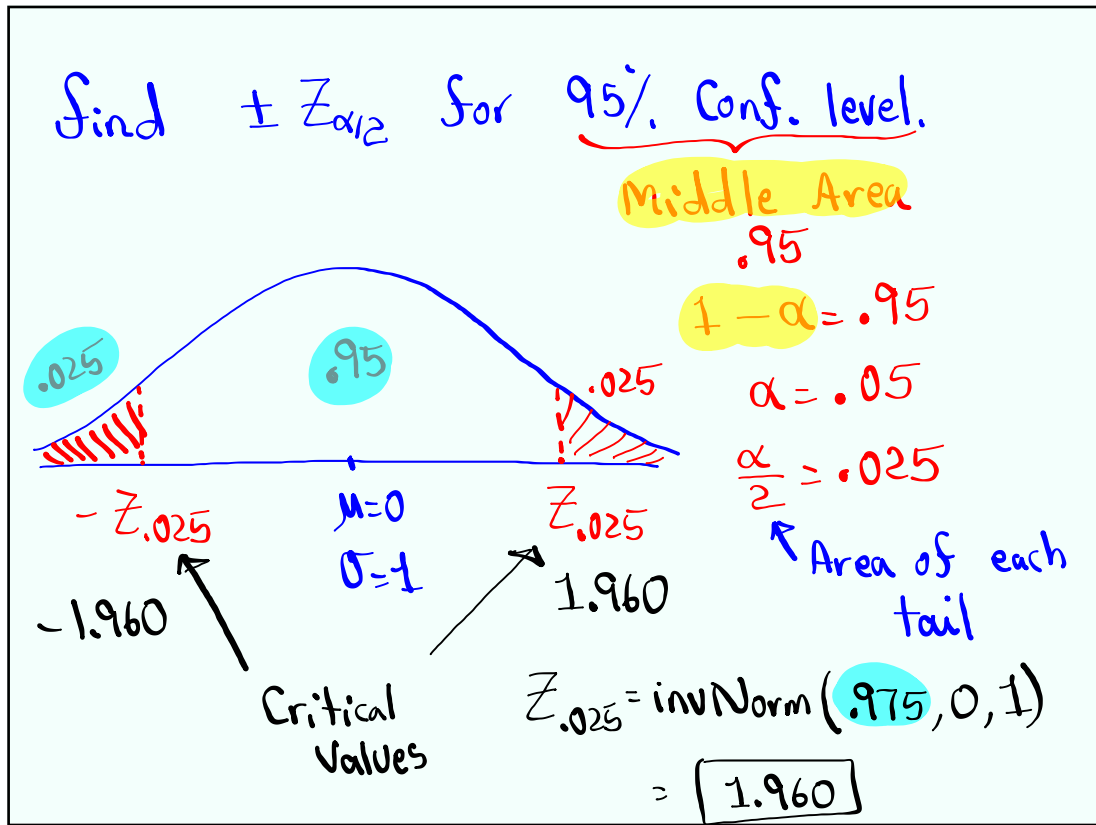 find ± Zα/2 for 95% Conf. level.
Middle Area
.95
1 - α = .95
α = .05
α/2 = .025
Area of each
tail
.025
.95
.025
- Z.025
μ=0
σ=1
Z.025
-1.960
1.960
Critical
Values
Z.025 = invNorm(.975, 0, 1)
= 1.960